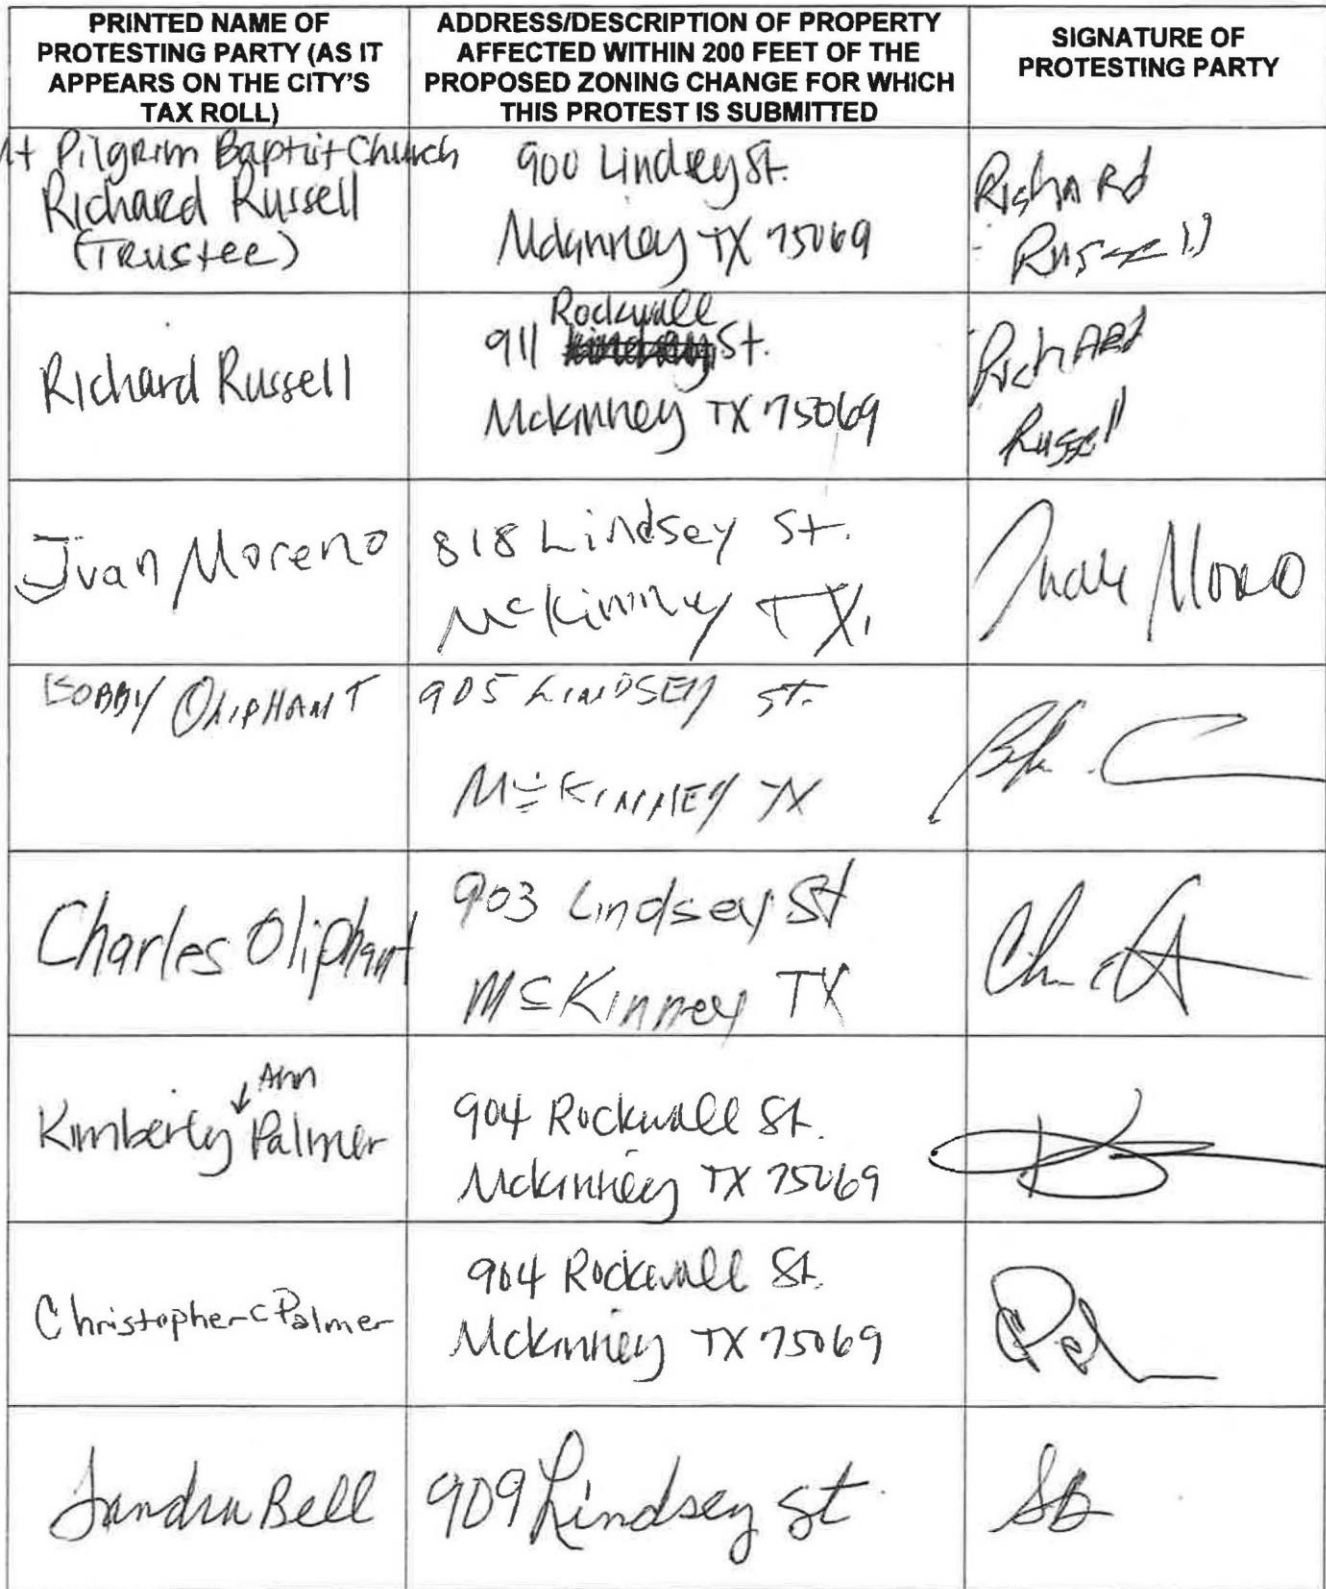 PRINTED NAME OF
PROTESTING PARTY (AS IT
APPEARS ON THE CITY'S
TAX ROLL)
ADDRESS/DESCRIPTION OF PROPERTY
AFFECTED WITHIN 200 FEET OF THE
PROPOSED ZONING CHANGE FOR WHICH
THIS PROTEST IS SUBMITTED
SIGNATURE OF
PROTESTING PARTY
Mt Pilgrim Baptist Church
Richard Russell
(Trustee)
900 Lindsey St.
Mckinney TX 75069
Richard
Russell
Richard Russell
Rockwall
911 St.
Mckinney TX 75069
Richard
Russell
Juan Moreno
818 Lindsey St.
McKinney TX,
Juan Moreno
BOBBY OLIPHANT
905 LINDSEY ST.
McKINNEY TX
Charles Oliphant
903 Lindsey St
McKinney TX
Ann
Kimberly Palmer
904 Rockwall St.
Mckinney TX 75069
Christopher C Palmer
904 Rockwall St.
Mckinney TX 75069
Sandra Bell
909 Lindsey St
SB